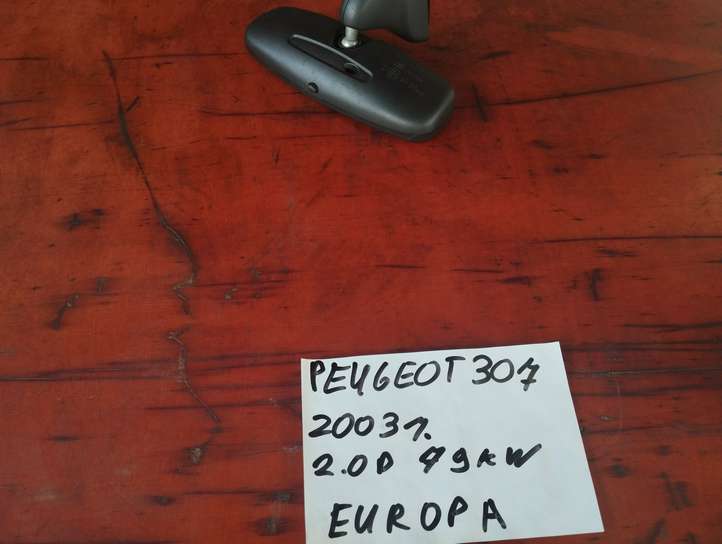 PEUGEOT 307
2003г.
2.0D 79kW
EUROPA